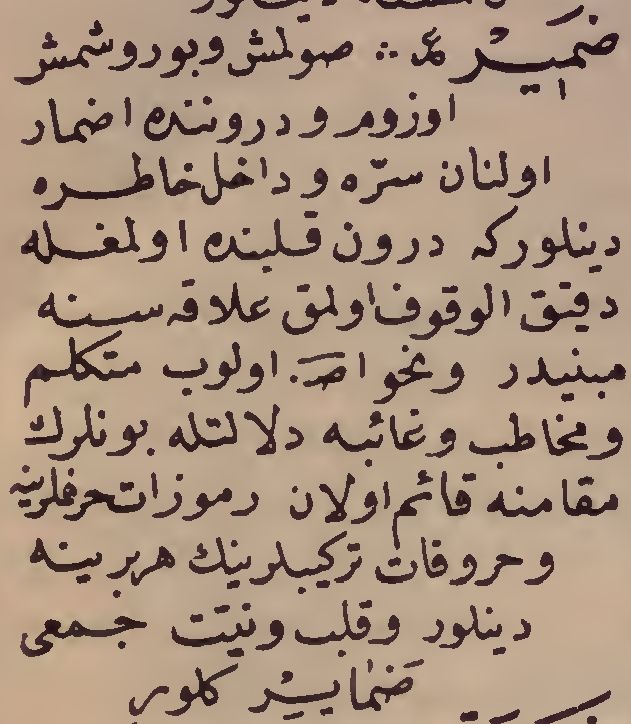 ضَمِيرْ ع ∴ صولمش وبوروشمش
اوزوم ودروننده اضمار
اولنان سرّه وداخل خاطره
دينلوركه درون قلبنده اولمغله
دقيق الوقوف اولمق علاقه سنه
مبنيدر ونحو اولوب متكلم
ومخاطب وغائبه دلالتله بونلرك
مقامنه قائم اولان رموزات حرفلرينه
وحروفات تركيبلرينك هربرينه
دينلور وقلب ونيّت جمعى
ضَمَايِرْ كلور